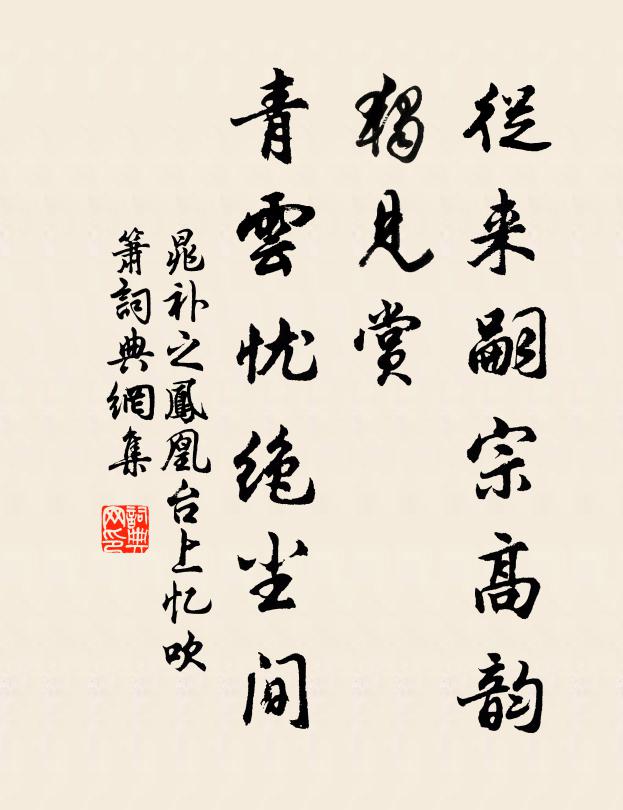 從来嗣宗高韵
獨見赏
青雲忧绝尘间
晁补之鳳凰台上忆吹
簫詞典網集
詞典
网印